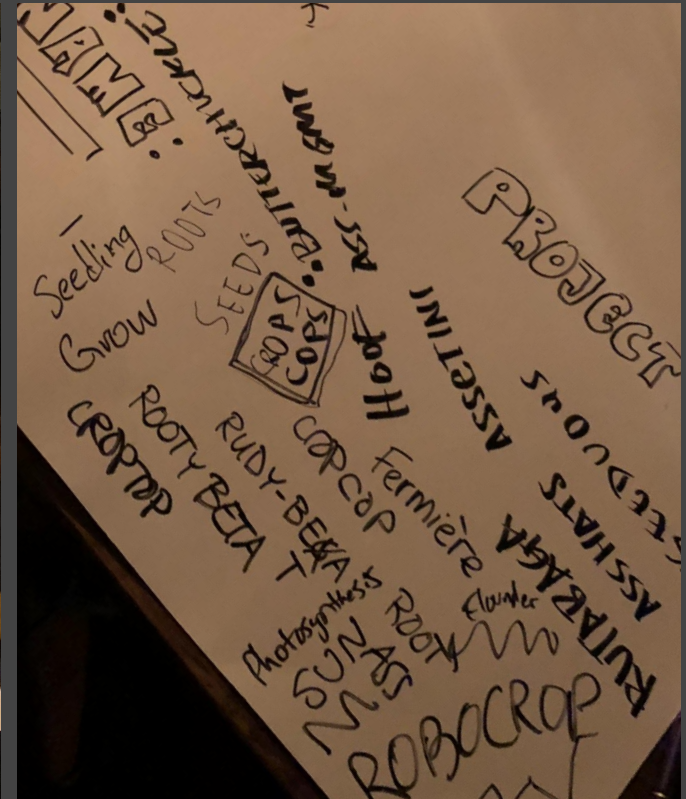 PROJECT
NAME:
• BUTTERCHUCKLE:
ASS-MGMT
Seedling
ROOTS
Grow
SEEDS
CROPS
COPS
HOOF
ASSETINI
SEEDUOUS
ASSHATS
RUTABAGA
CROPTOP
ROOTY BETA
T
RUDY-BEGA
COPCOP
Fermière
Photosynthesis
ROOT
flounder
SUNZ ASS
ROBOCROP